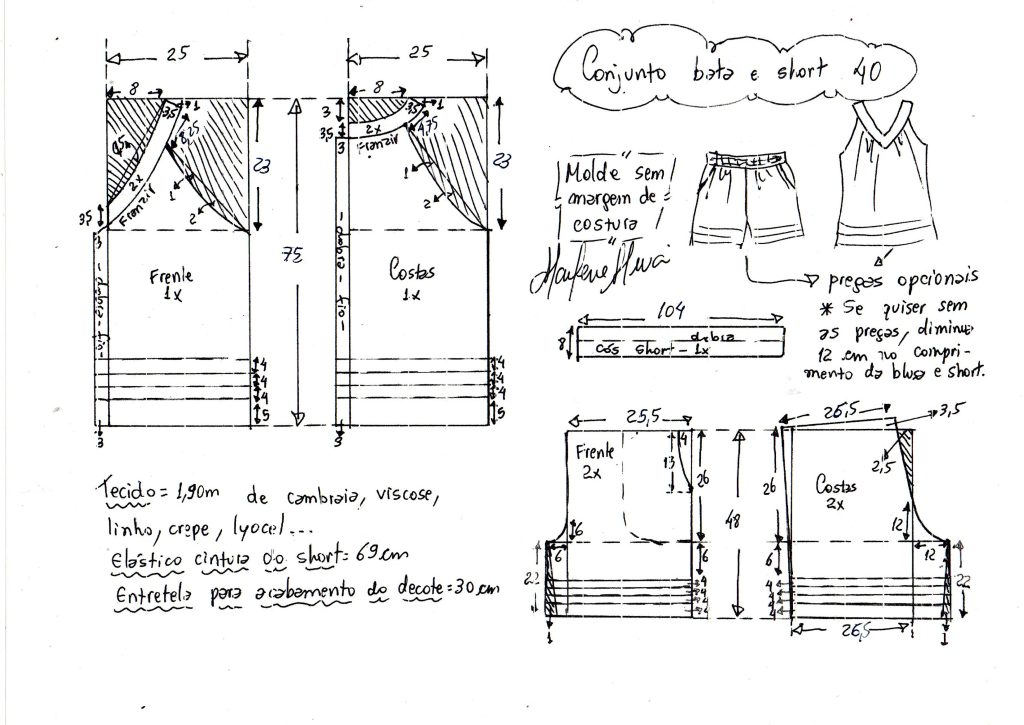 Conjunto bata e short 40
25
8
3,5
1
8,25
9,5
2x
Franzir
3,5
3
1
2
23
Frente
1x
dobra - fio
4
4
4
5
3
75
25
8
3
3,5
3,5
1
4,75
2x
Franzir
3
1
2
23
Costas
1x
dobra - fio
4
4
4
5
3
Molde sem
margem de
costura
pregas opcionais
* Se quiser sem
as pregas, diminua
12 cm no compri-
mento da blusa e short.
104
8
dobra
cós short - 1x
25,5
Frente
2x
4
13
26
6
6
22
6
4
4
4
4
1
48
26,5
3,5
2,5
26
Costas
2x
12
12
6
4
4
4
4
22
26,5
1
Tecido = 1,90m de cambraia, viscose,
linho, crepe, lyocel...
Elástico cintura do short = 69cm
Entretela para acabamento do decote = 30 cm